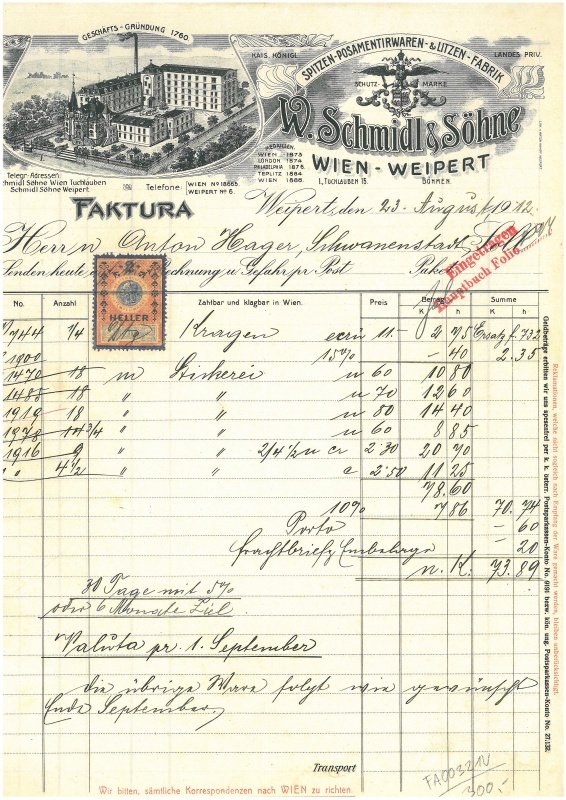 GESCHÄFTS-GRÜNDUNG 1760
KAIS. KÖNIGL.
LANDES PRIV.
SPITZEN-POSAMENTIRWAREN-& LITZEN-FABRIK
SCHUTZ MARKE
W. Schmidl & Söhne
WIEN - WEIPERT
I., TUCHLAUBEN 15. BÖHMEN.
MEDAILLEN
WIEN - 1873
LONDON 1874
PHILADELPHIA 1876
TEPLITZ 1884
WIEN 1888.
Telegr.-Adressen:
Schmidl Söhne Wien Tuchlauben
Schmidl Söhne Weipert.
Telefone:
WIEN No 18665
WEIPERT No 6.
FAKTURA
Weipert, den 23. August 1912.
Herrn Anton Hager, Schwanenstadt
Senden heute Rechnung u Gefahr pr Post Paket
Eingetragen
Hauptbuch Folio
No. Anzahl Zahlbar und klagbar in Wien. Preis Betrag Summe
K h K h
2
HELLER
744 1/4 Kragen ecru 11.- 2 75 Ersatz f. 732
1900 15% - 40 2.35
1470 18 m Stickerei u 60 10 80
1485 18 " " u 70 12 60
1919 18 " " u 80 14 40
1978 14 3/4 " " u 60 8 85
1916 9 " 2/4 1/2 u cr 2.30 20 70
" 4 1/2 " " c 2.50 11 25
78.60
10% 7 86 70. 74
Porto - 60
Frachtbrief, Embalage - 20
n. K. 73. 89
30 Tage mit 5%
oder 6 Monate Ziel.
Valuta pr. 1. September
Die übrige Ware folgt wie gewünscht
Ende September.
Transport
Wir bitten, sämtliche Korrespondenzen nach WIEN zu richten.
FA003214
300,-
Reklamationen, welche nicht sogleich nach Empfang der Ware gemacht werden, bleiben unberücksichtigt.
Geldbeträge erbitten wir uns spesenfrei per k. k. österr. Postsparkassen-Konto No. 9191 bezw. kön. ung. Postsparkassen-Konto No. 27.132.